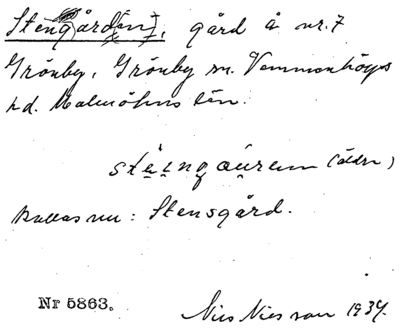 Stengård[en], gård å nr. 7
Grönby, Grönby sn. Vemmenhögs
hd. Malmöhus län.
(äldre)
Kallas nu: Stensgård.
Nr 5863.
Nils Nilsson 1934.